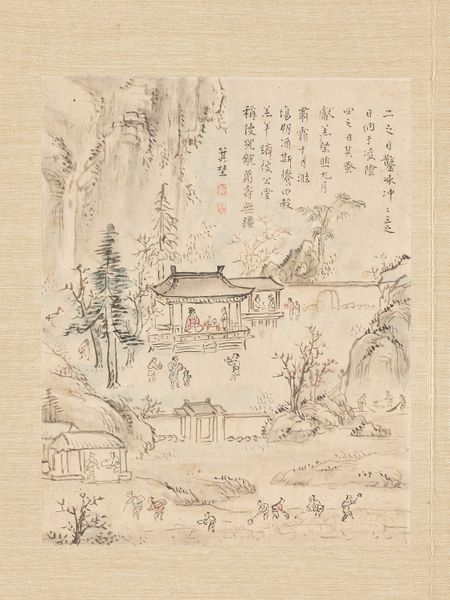 二之日鑿冰冲〻三之
日內于凌陰
四之日其蚤
獻羔祭韭九月
肅霜十月滌
場朋酒斯饗曰殺
羔羊躋彼公堂
稱彼兕觥萬壽無疆
箕埜